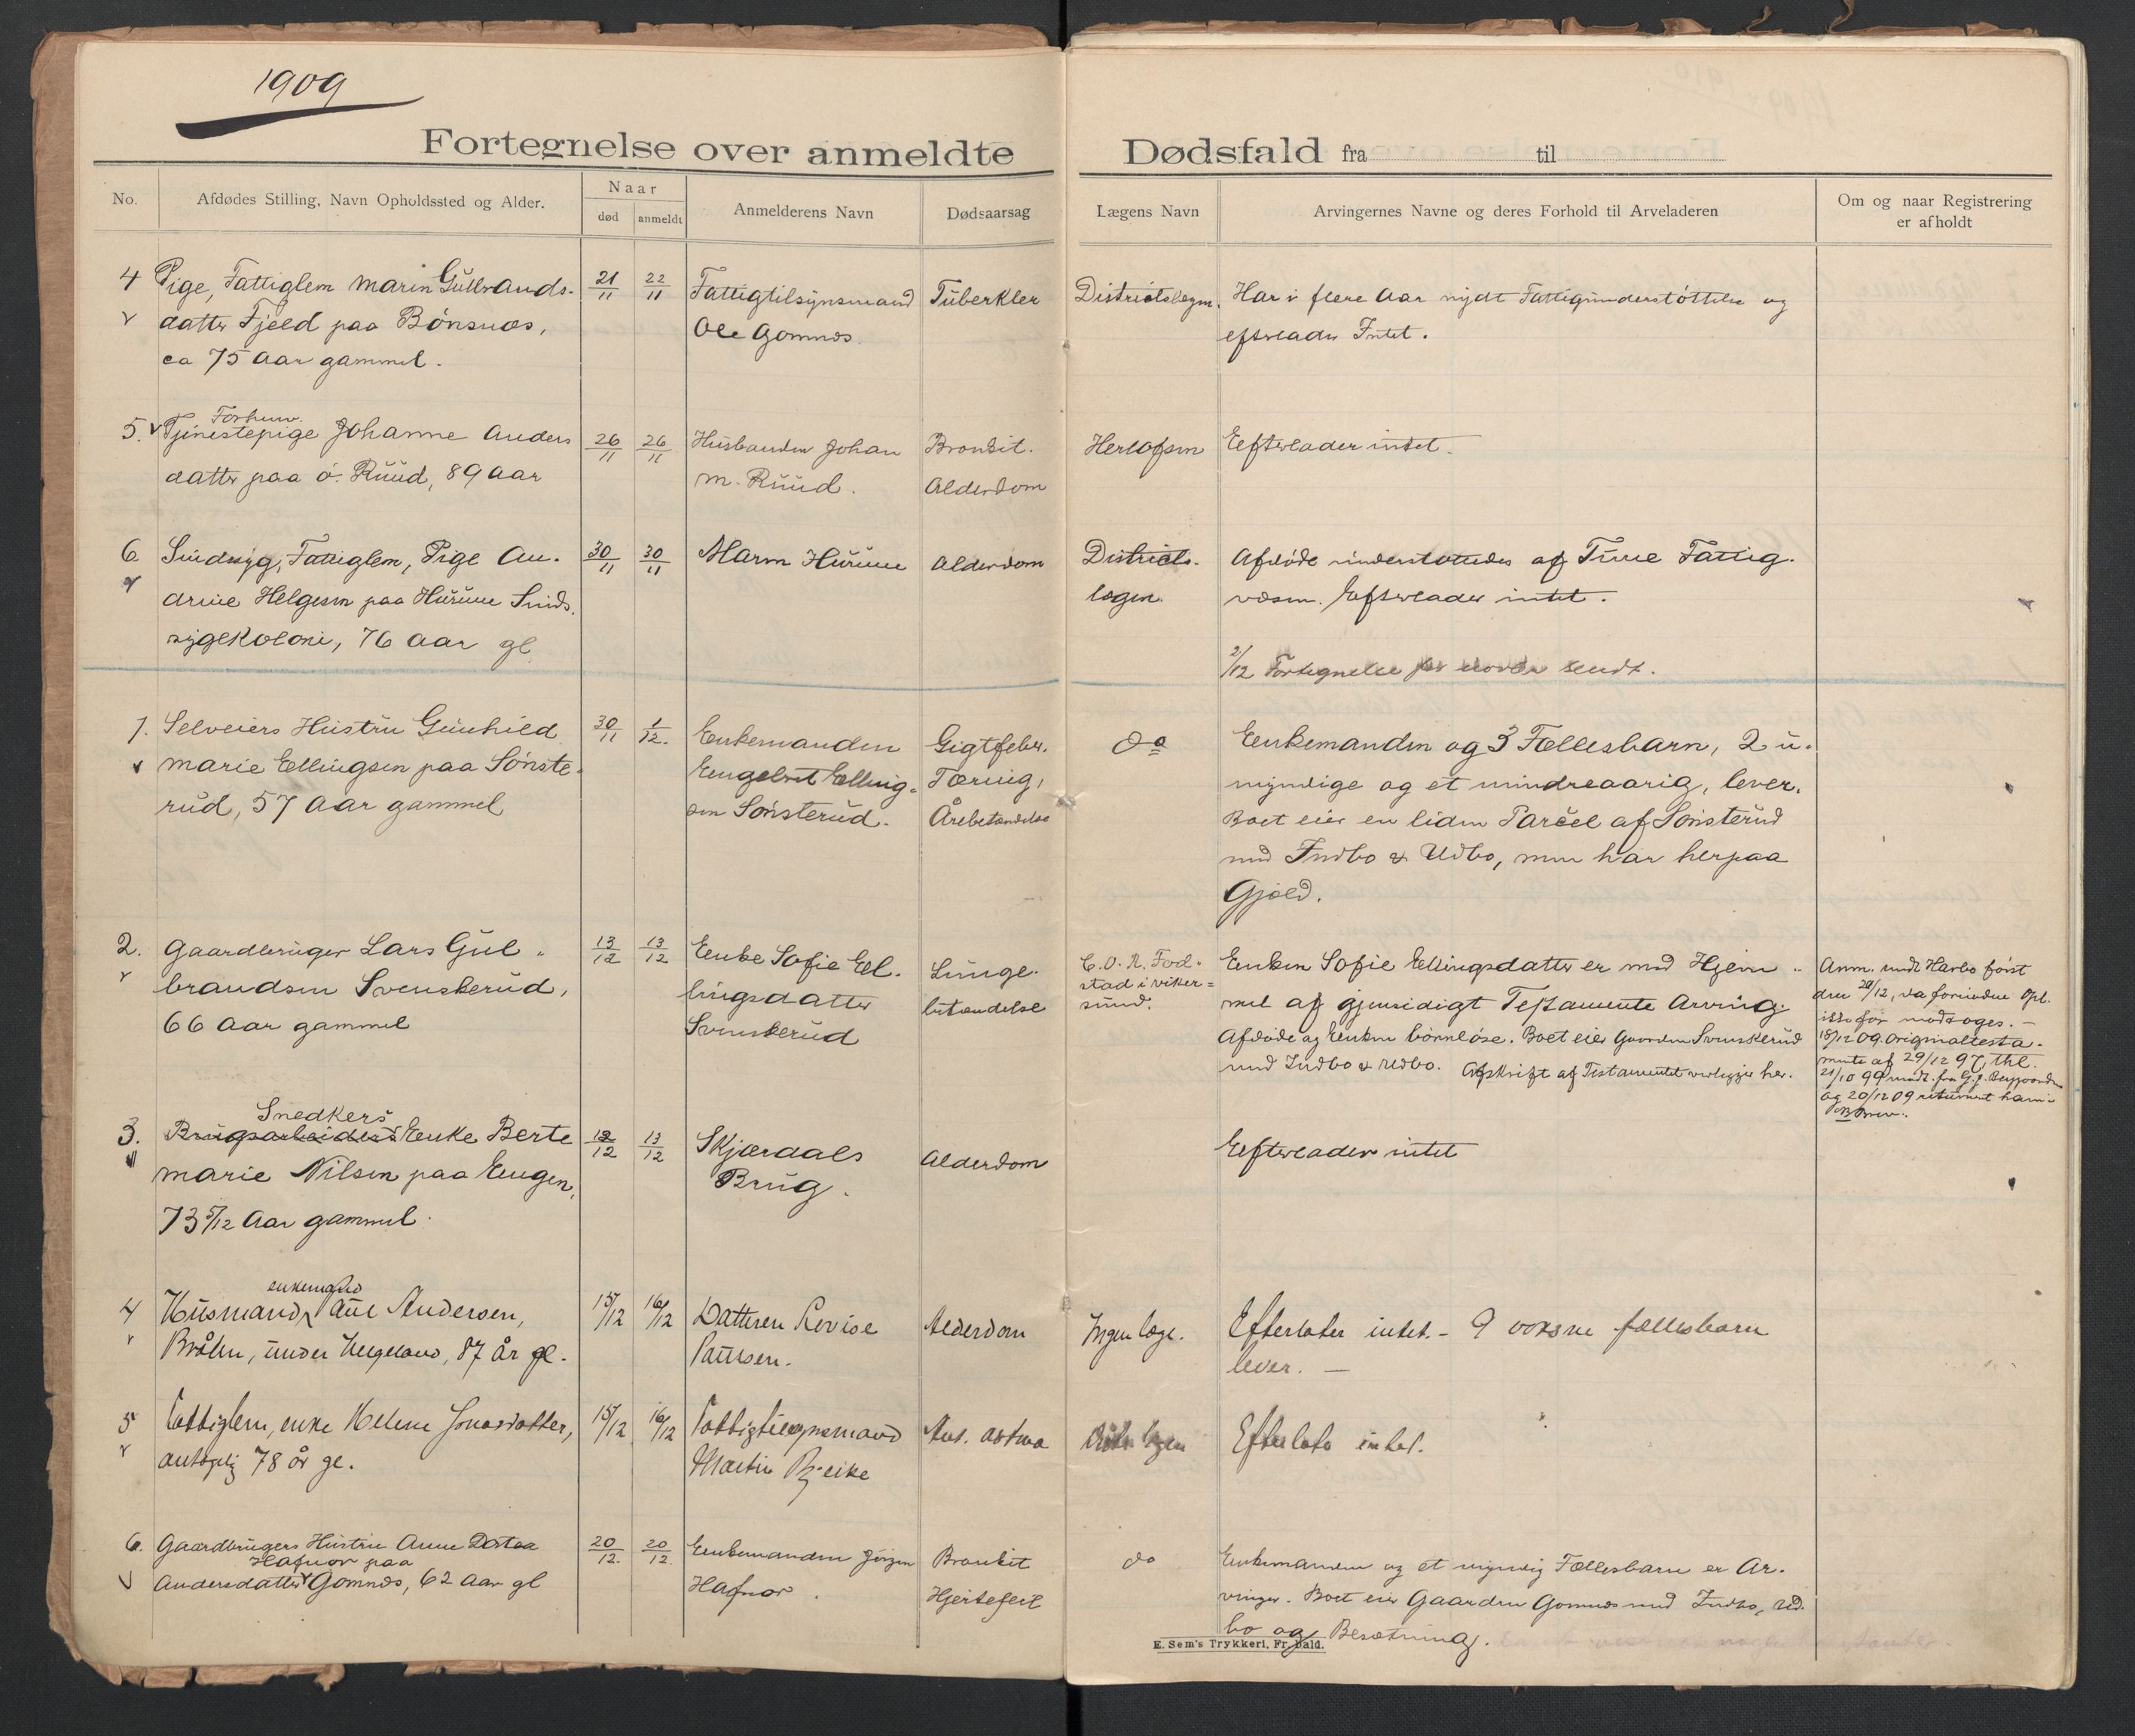 1909
Fortegnelse over anmeldte Dødsfald fra til
No.
Afdødes Stilling, Navn Opholdssted og Alder.
Naar
død
anmeldt
Anmelderens Navn
Dødsaarsag
Lægens Navn
Arvingernes Navne og deres Forhold til Arveladeren
Om og naar Registrering
er afholdt
4 Pige, Fattiglem Marin Gulbrands-
datter Fjeld paa Bönsnæs,
ca 75 Aar gammel.
21/11
22/11
Fattigtilsynsmand
Ole Gomnæs.
Tuberkler
Districtslægen.
Har i flere Aar nydt Fattigunderstöttelse og
efterlader Intet.
Forhenv.
5. Tjenestepige Johanne Anders
datter paa ö. Ruud, 89 Aar
26/11
26/11
Husbonden Johan
M. Ruud.
Bronkit.
Alderdom
Herlofsen
Efterlader intet.
6. Sindssyg, Fattiglem, Pige An-
drine Helgesen paa Hurum Sinds-
sygekoloni, 76 Aar gl
30/11
30/11
Alderdom
Districts-
lægen.
Afdöde understöttedes af Fattig-
væsen. Efterlader intet.
2/12 Fortegnelse for sendt.
1. Selveiers Hustru Gunhild
Marie Ellingsen paa Sönste-
rud, 57 Aar gammel
30/11
1/12.
Enkemanden
Engebret Elling-
sen Sönsterud.
Gigtfeber,
Tæring,
Årebetændelse
do
Enkemanden og 3 Fællesbarn, 2 u-
myndige og et mindreaarig, lever.
Boet eier en liden Parcel af Sönsterud
med Indbo & Udbo, men har herpaa
Gjæld.
2. Gaardbruger Lars Gul-
brandsen Svenskerud,
66 Aar gammel
13/12
13/12
Enke Sofie El-
lingsdatter
Svenskerud
Lunge-
betændelse
C. O. R. Fod-
stad i Viker-
sund.
Enken Sofie Ellingsdatter er med Hjem-
mel af gjensidigt Testamente Arving.
Afdöde og Enken börnlöse. Boet eier Gaarden Svenskerud
med Indbo & Udbo. Afskrift af Testamentet vedligger her.
Anm. först
den 20/12, da fornödne Opl.
ikke för modtoges. -
18/12 09. Originaltesta-
mente af 29/12 97, thl.
21/10 99 modt. fra
og 20/12 09 returnert ham i
Snedkers
3. Brugsarbeiders Enke Berte
Marie Nilsen paa Engen,
73 5/12 Aar gammel.
12/12
13/12
Skjærdals
Brug.
Alderdom
Efterlader intet
enkemand
4 Husmand Andersen,
Bråten, under 87 år gl.
15/12
16/12
Datteren Lovise
Paulsen.
Alderdom
Ingen læge.
Efterlater intet. - 9 voksne fællesbarn
lever. -
5 Fattiglem, enke Helene Jonasdatter,
antagelig 78 år gl.
15/12
16/12
Fattigtilsynsmand
Martin Bjerke
Ast. astma
Efterlater intet.
6. Gaardbrugers Hustru Anne Dortea
Hafnor paa
Andersdatter Gomnæs, 62 Aar gl
20/12.
20/12
Enkemanden Jörgen
Hafnor.
Bronkit
Hjertefeil
do
Enkemanden og et myndig Fællesbarn er Ar-
vinger. Boet eier Gaarden Gomnæs med Indbo, Ud-
bo og Besætning.
E. Sem's Trykkeri, Fr.hald.